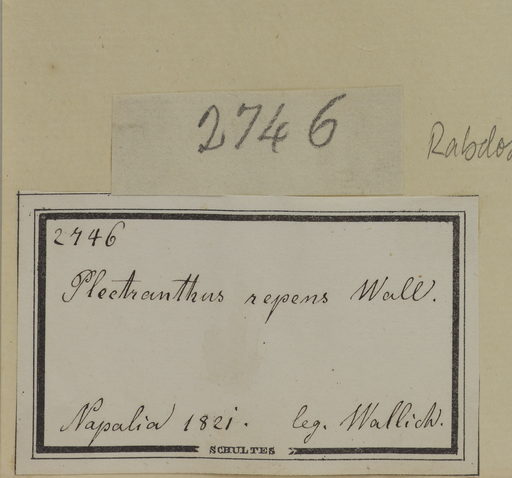 2746
Rabdos
2746
Plectranthus repens Wall.
Napalia 1821. leg. Wallich.
SCHULTES